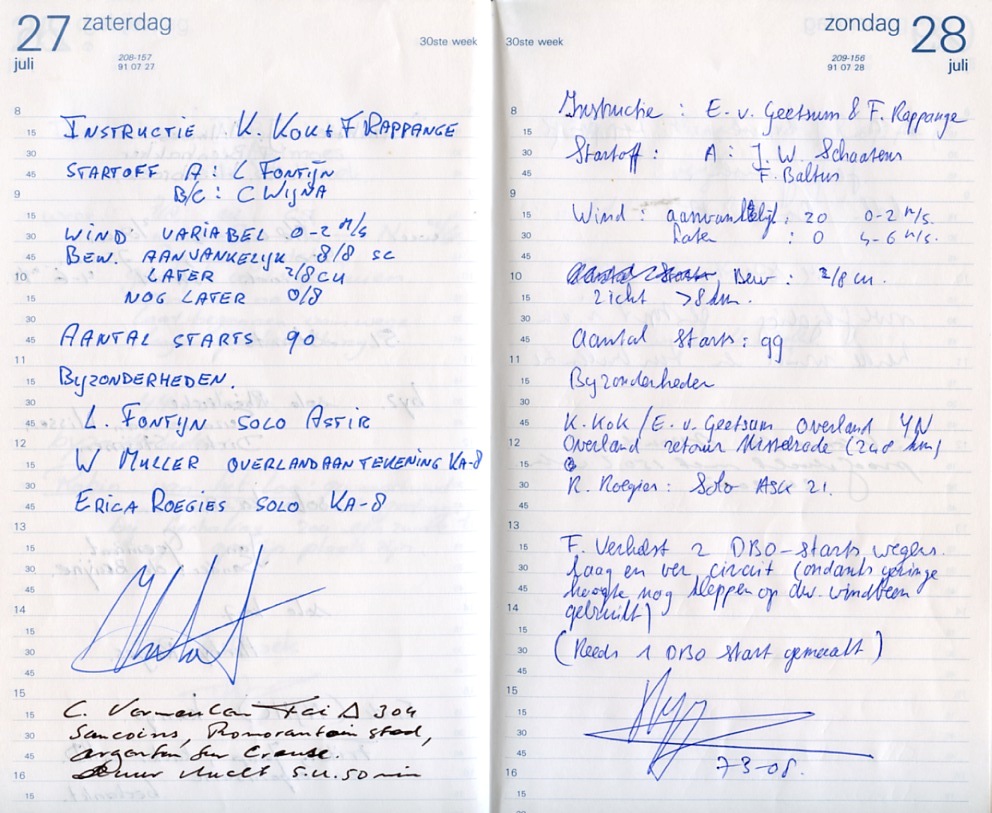 27 zaterdag
juli
208-157
91 07 27
30ste week
8
INSTRUCTIE K. KOK & F RAPPANGE
15
30
STARTOFF A : L FONTIJN
45
B/C : C WIJNA
9
15
WIND: VARIABEL 0-2 M/S
30
BEW. AANVANKELIJK 8/8 SC
45
LATER 2/8 CU
10
NOG LATER 0/8
15
30
AANTAL STARTS 90
45
11
BYZONDERHEDEN.
15
30
L. FONTIJN SOLO ASTIR
45
12
W MULLER OVERLANDAANTEKENING KA-8
15
30
ERICA ROEGIES SOLO KA-8
45
13
15
30
45
14
15
30
45
15
C. Vermeulen FAI Δ 304
15
Sancoins, Romorantin
30
argenton sur Creuse.
45
Duur vlucht 5.u. 50 min
16
15
zondag 28
juli
209-156
91 07 28
30ste week
8
Instructie : E. v. Geetsum & F. Rappange
15
30
Startoff : A : J. W. Schaatens
45
F. Baltus
9
15
Wind : aanvankelijk : 20 0-2 m/s.
30
Later : 0 4-6 m/s.
45
10
Bew : 2/8 cu.
15
zicht > 8 km.
30
45
Aantal Starts : 99
11
15
Byzonderheden
30
45
K. Kok / E. v. Geetsum Overland YN
12
Overland retour (240 km)
15
30
R. Roegies : Solo ASK 21.
45
13
15
F. Verhelst 2 DBO-starts wegens
30
laag en ver circuit (ondanks geringe
45
hoogte nog kleppen op dw. windbeen
14
gebruikt)
15
30
(Reeds 1 DBO start gemaakt)
45
15
15
30
45
73-08.
16
15